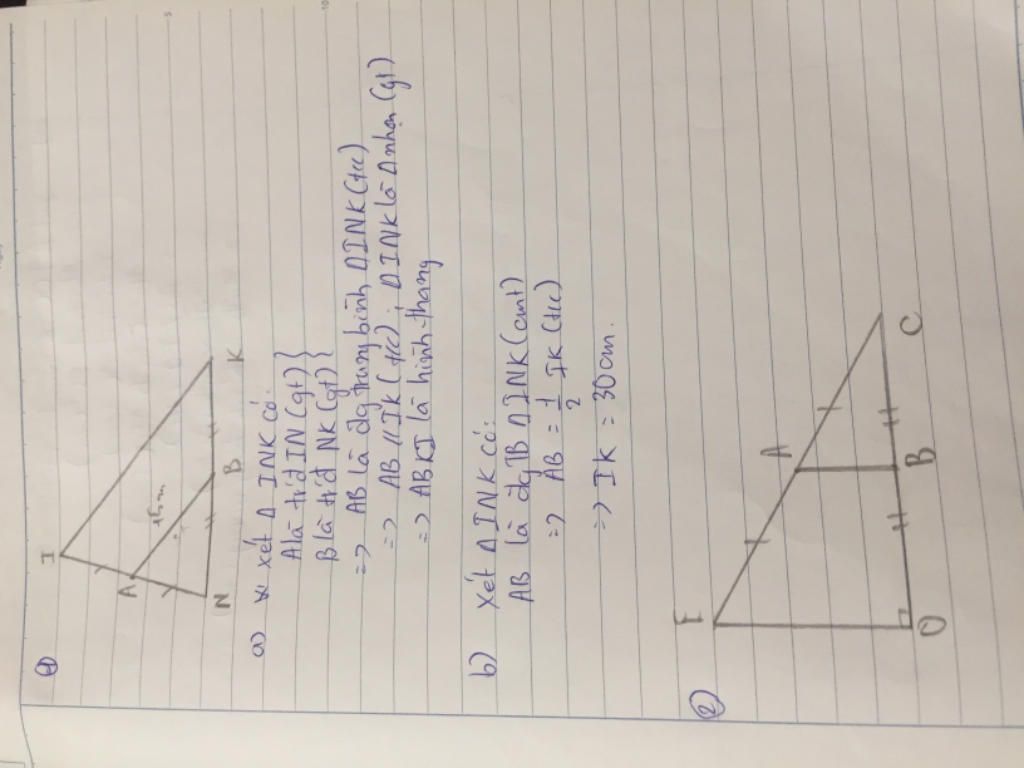 ①
I
A
15cm
N
B
K
a) Xét Δ INK có:
A là tr/đ IN (gt) }
B là tr/đ NK (gt) }
=> AB là đg trung bình ΔINK (t/c)
=> AB // IK (t/c) ; ΔINK là Δ nhọn (gt)
=> ABKI là hình thang
b) Xét Δ INK có:
AB là đg TB Δ INK (cmt)
=> AB = 1/2 IK (t/c)
=> IK = 30cm.
②
A
O
B
C